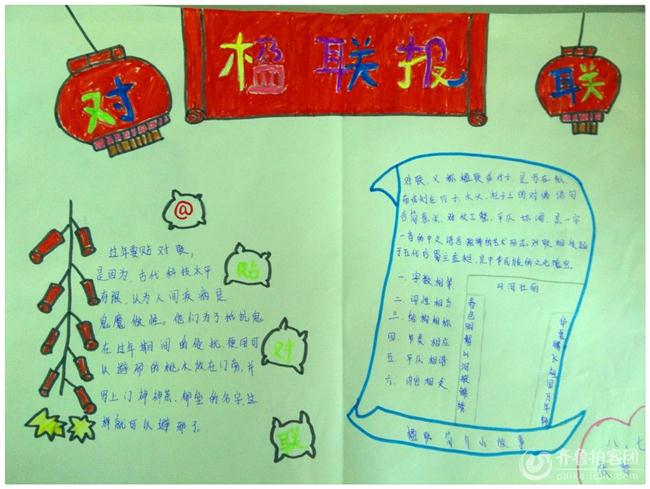 对
楹联报
联
@
贴
对
联
过年要贴对联,
是因为,古代科技水平
有限,认为人间疾病是
鬼魔做怪。他们为了抵抗鬼
在过年期间的侵扰,便用可
以避邪的桃木放在门旁,并
写上门神神荼、郁垒的名字,这
样就可以避邪了。
对联,又称楹联或对子,是写在纸、
布或刻在竹子、木头、柱子上的对偶语句
言简意深,对仗工整,平仄协调,是一字
一音的中文语言独特的艺术形式。对联相传起
于五代后蜀主孟昶,是中华民族的文化瑰宝。
一、字数相等
二、词性相当
三、结构相称
四、节奏相应
五、平仄相谐
六、内容相关
春色明媚山河披锦绣
华夏腾飞祖国万年轻
楹联
故事
八、七
齐鲁拍客团